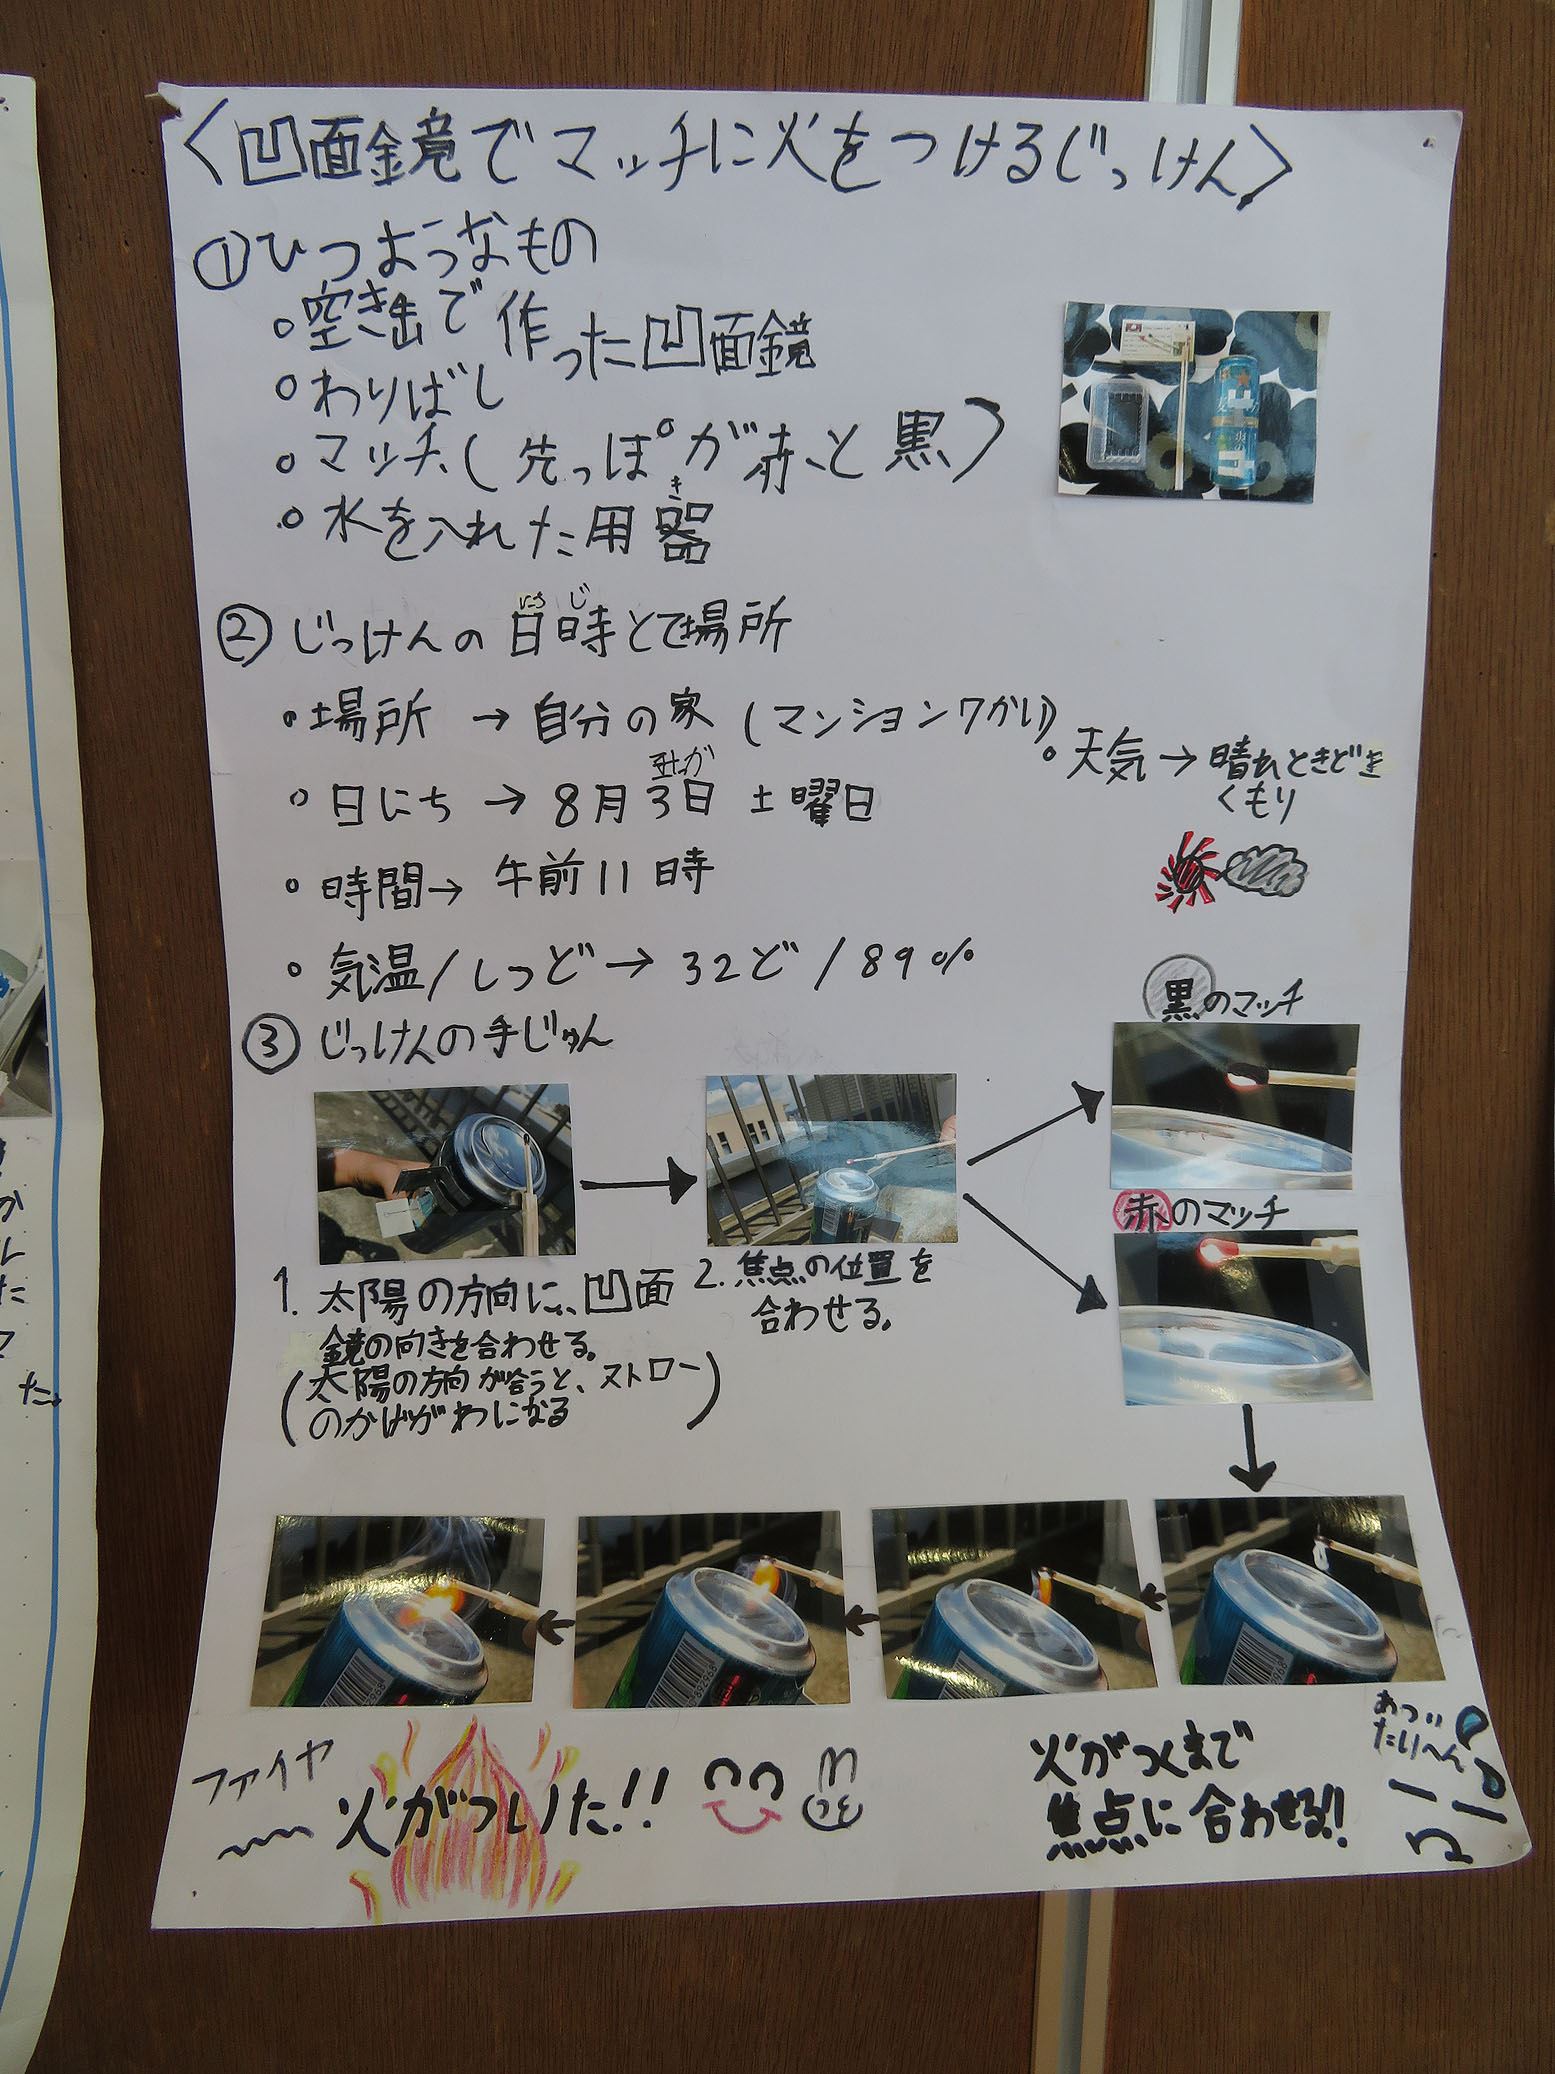 〈凹面鏡でマッチに火をつけるじっけん〉
①ひつようなもの
○空き缶で作った凹面鏡
○わりばし
○マッチ(先っぽが赤と黒)
○水を入れた用器
き
②じっけんの日時とで場所
にち じ
○場所→自分の家(マンション7かい)
○天気→晴れときどき
くもり
○日にち→8月3日 土曜日
みっか
○時間→午前11時
○気温/しつど→32ど/89%
③じっけんの手じゅん
黒のマッチ
赤のマッチ
1. 太陽の方向に、凹面
鏡の向きを合わせる。
(太陽の方向が合うと、ストロー
のかげがわになる)
2. 焦点の位置を
合わせる。
ファイヤ
火がついた!!
火がつくまで
焦点に合わせる!!
あつい
たいへん